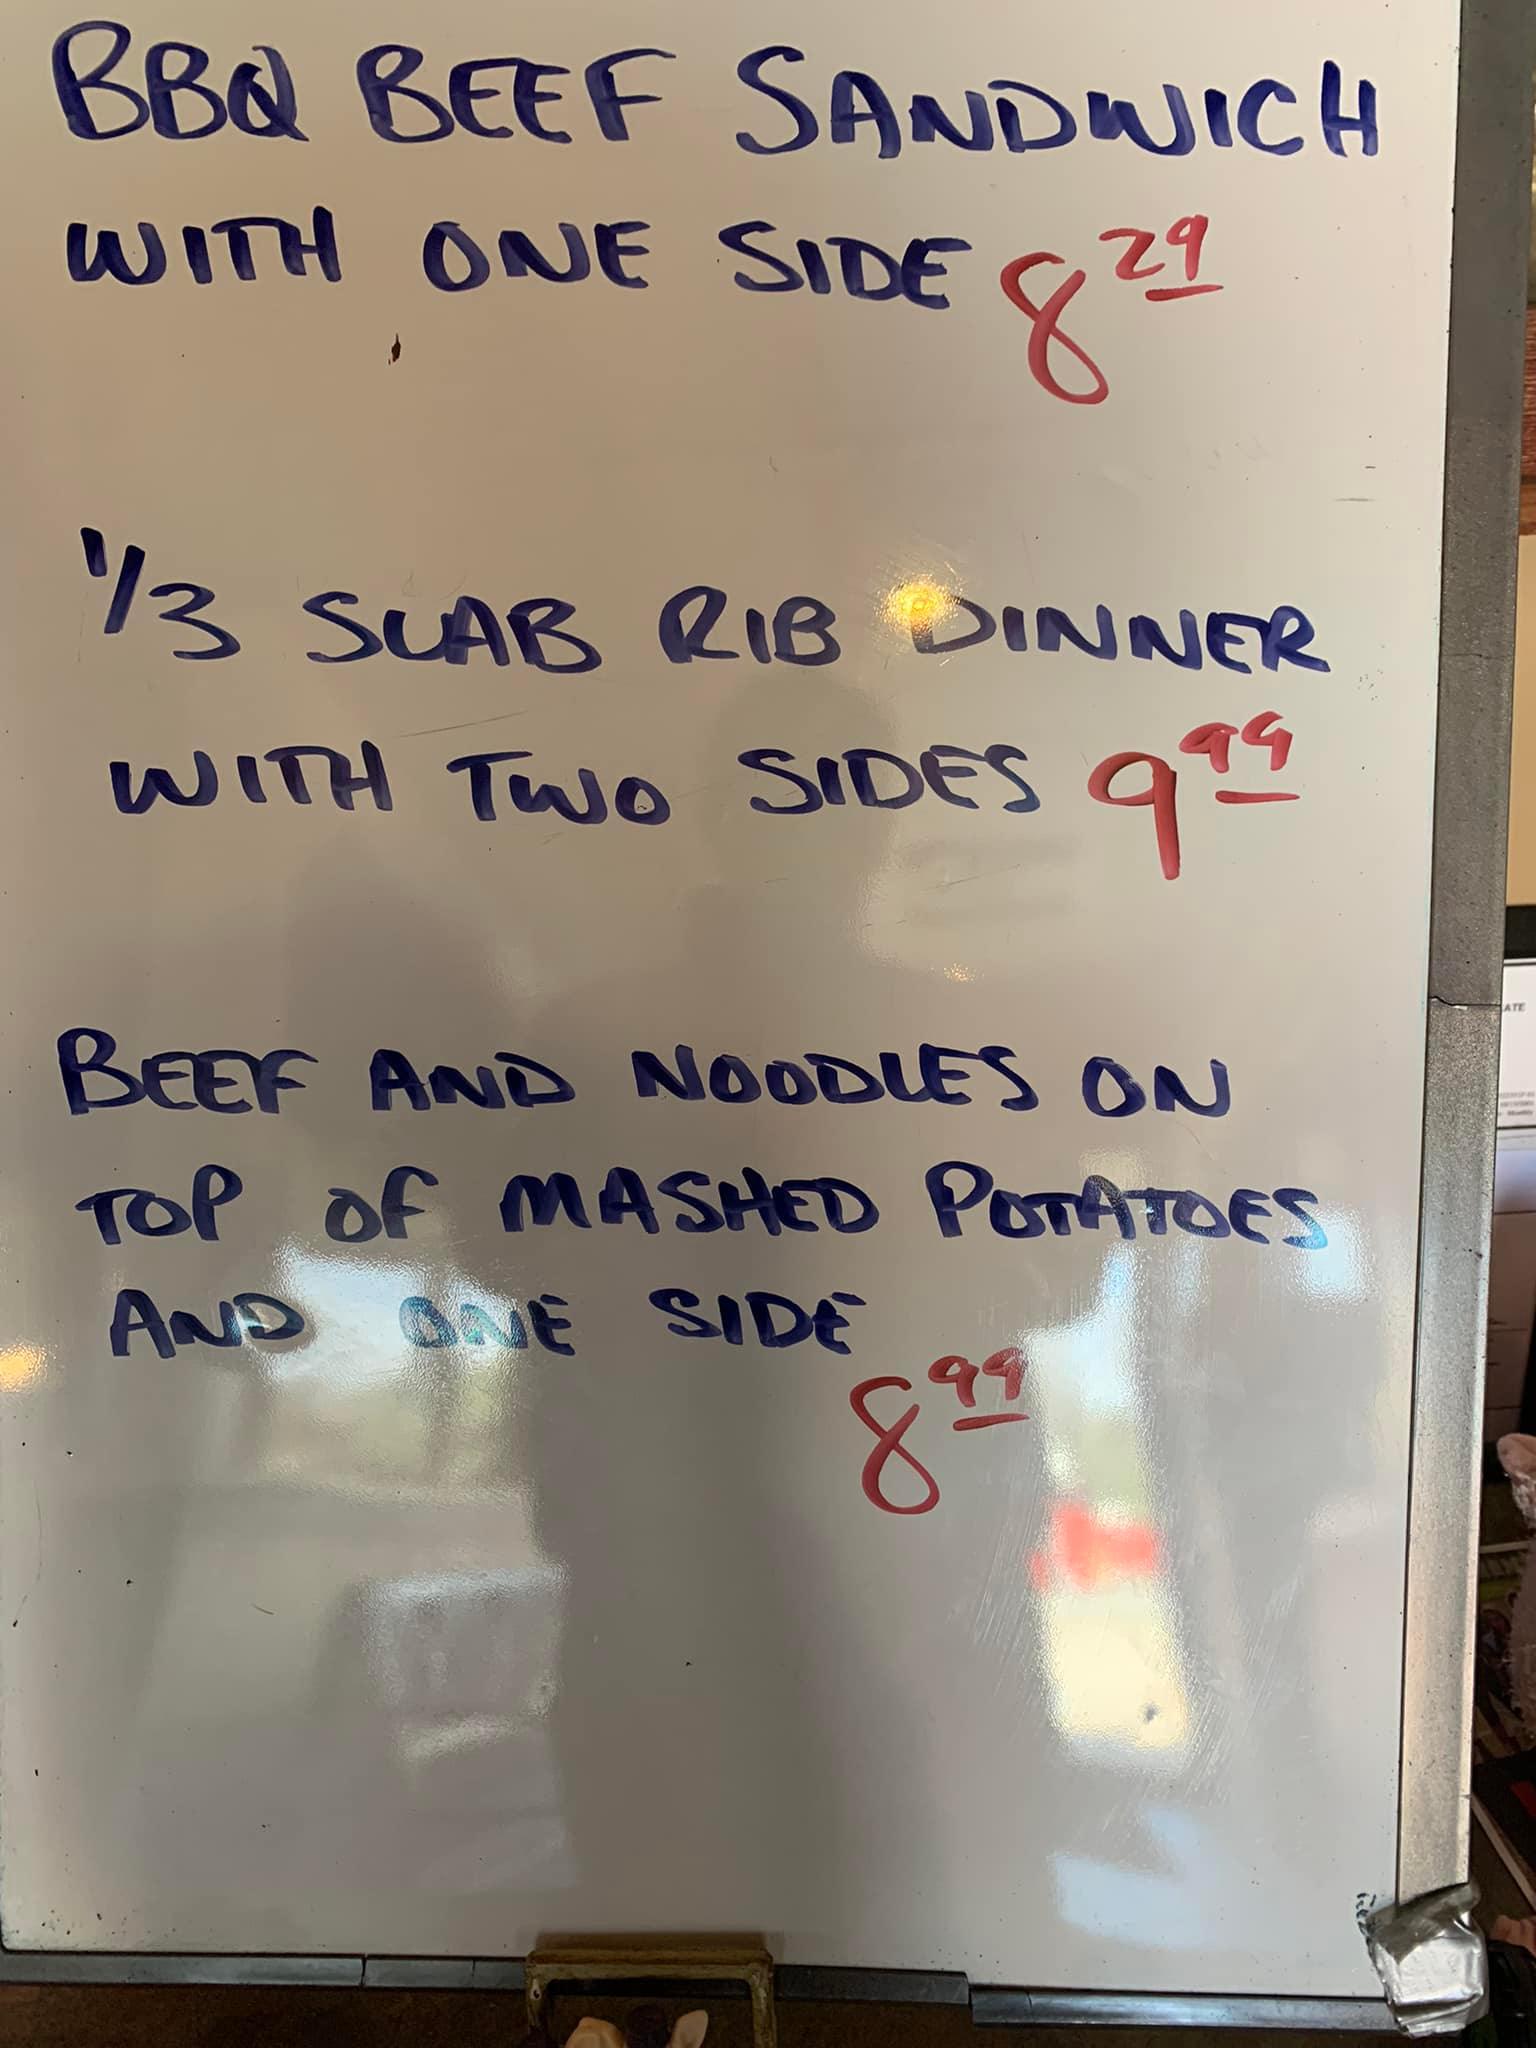 BBQ BEEF SANDWICH
WITH ONE SIDE 8 29
1/3 SLAB RIB DINNER
WITH TWO SIDES 9 99
BEEF AND NOODLES ON
TOP OF MASHED POTATOES
AND ONE SIDE
8 99
ATE
Monthly